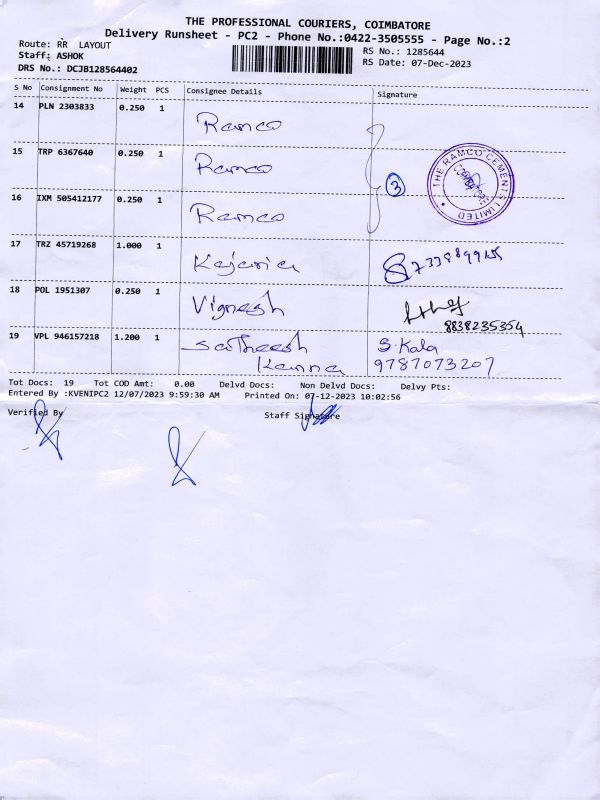 THE PROFESSIONAL COURIERS, COIMBATORE
Delivery Runsheet - PC2 - Phone No.:0422-3505555 - Page No.:2
Route: RR LAYOUT
RS No.: 1285644
Staff: ASHOK
RS Date: 07-Dec-2023
DRS No.: DCJB128564402
S No Consignment No Weight PCS Consignee Details Signature
14 PLN 2303833 0.250 1 Ramco
15 TRP 6367640 0.250 1 Ramco
3
THE RAMCO CEMENTS LIMITED
16 IXM 505412177 0.250 1 Ramco
17 TRZ 45719268 1.000 1 Kajaria
18 POL 1951307 0.250 1 Vignesh
8838235354
19 VPL 946157218 1.200 1 Satheesh S.Kala
Kanna 9787073207
Tot Docs: 19 Tot COD Amt: 0.00 Delvd Docs: Non Delvd Docs: Delvy Pts:
Entered By :KVENIPC2 12/07/2023 9:59:30 AM Printed On: 07-12-2023 10:02:56
Verified By Staff Signature